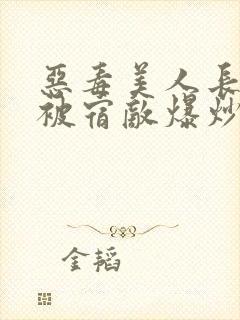 惡毒美人長
被宿敵爆炒
金韬